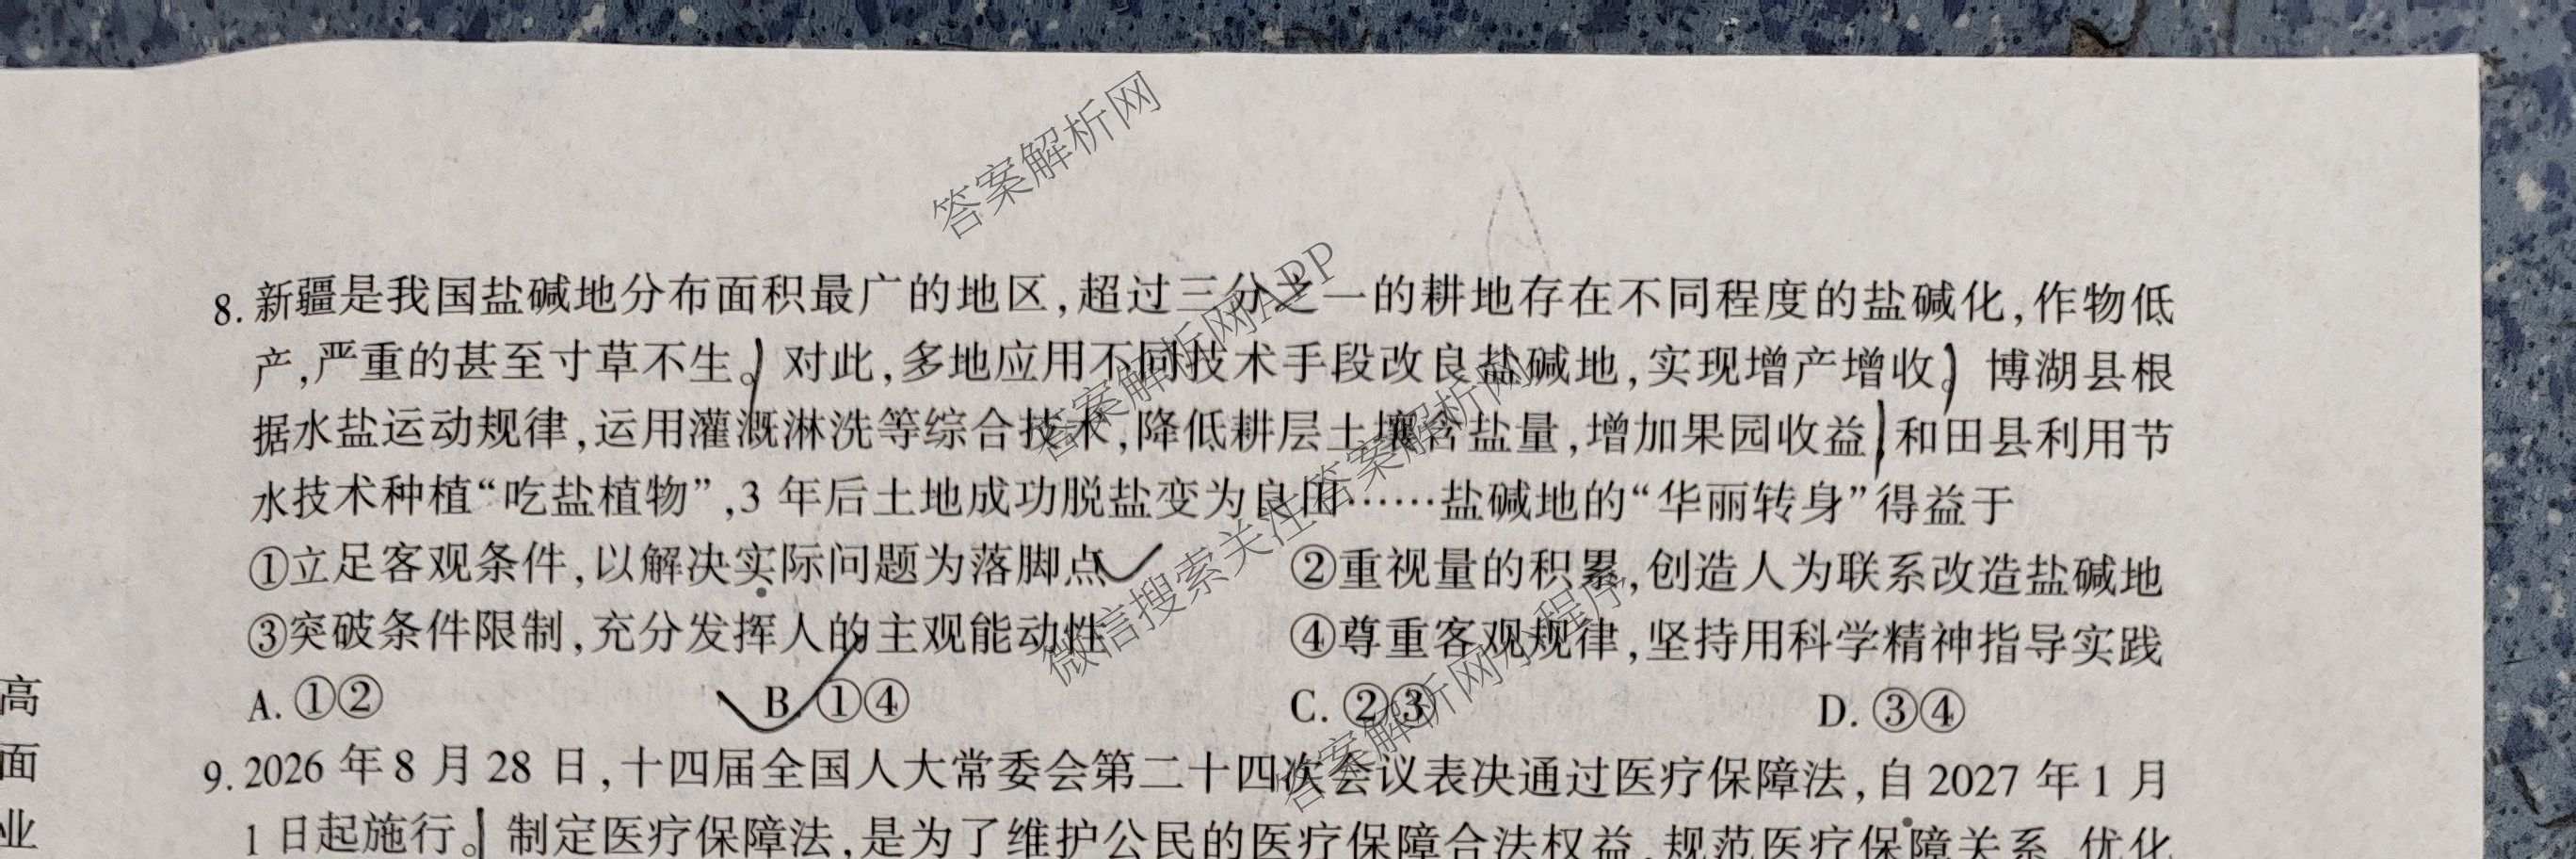 答案解析网
8.新疆是我国盐碱地分布面积最广的地区,超过三分之一的耕地存在不同程度的盐碱化,作物低
产,严重的甚至寸草不生。对此,多地应用不同技术手段改良盐碱地,实现增产增收。博湖县根
据水盐运动规律,运用灌溉淋洗等综合技术,降低耕层土壤含盐量,增加果园收益;和田县利用节
水技术种植“吃盐植物”,3年后土地成功脱盐变为良田……盐碱地的“华丽转身”得益于
①立足客观条件,以解决实际问题为落脚点 ②重视量的积累,创造人为联系改造盐碱地
③突破条件限制,充分发挥人的主观能动性 ④尊重客观规律,坚持用科学精神指导实践
A.①② B.①④ C.②③ D.③④
9.2026年8月28日,十四届全国人大常委会第二十四次会议表决通过医疗保障法,自2027年1月
1日起施行。制定医疗保障法,是为了维护公民的医疗保障合法权益,规范医疗保障关系,优化
高
面
业
答案解析网APP
微信搜索关注答案解析网
答案解析网小程序